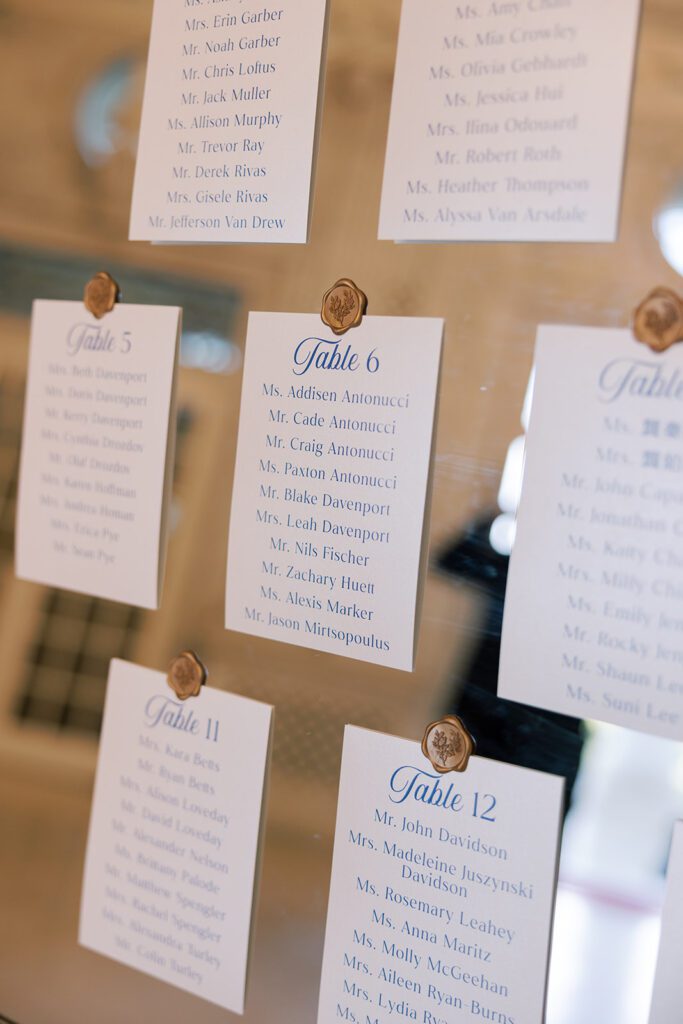 Mrs. Erin Garber
Mr. Noah Garber
Mr. Chris Loftus
Mr. Jack Muller
Ms. Allison Murphy
Mr. Trevor Ray
Mr. Derek Rivas
Mrs. Gisele Rivas
Mr. Jefferson Van Drew
Ms. Amy
Ms. Mia Crowley
Ms. Olivia Gebhardt
Ms. Jessica Hui
Mrs. Ilina Odouard
Mr. Robert Roth
Ms. Heather Thompson
Ms. Alyssa Van Arsdale
Table 5
Mrs. Beth Davenport
Mrs. Doris Davenport
Mr. Kerry Davenport
Mrs. Cynthia Drozdov
Mr. Olaf Drozdov
Mrs. Karen Hoffman
Mrs. Andrea Homan
Mrs. Erica Pye
Mr. Sean Pye
Table 6
Ms. Addisen Antonucci
Mr. Cade Antonucci
Mr. Craig Antonucci
Ms. Paxton Antonucci
Mr. Blake Davenport
Mrs. Leah Davenport
Mr. Nils Fischer
Mr. Zachary Huett
Ms. Alexis Marker
Mr. Jason Mirtsopoulus
Table
Ms.
Mrs.
Mr. John
Mr. Jonathan
Ms. Katty
Mrs. Milly
Ms. Emily
Mr. Rocky
Mr. Shaun Lee
Ms. Suni Lee
Table 11
Mrs. Kara Betts
Mr. Ryan Betts
Mrs. Alison Loveday
Mr. David Loveday
Mr. Alexander Nelson
Ms. Brittany Palode
Mr. Matthew Spengler
Mrs. Rachel Spengler
Mrs. Alexandra Turley
Mr. Colin Turley
Table 12
Mr. John Davidson
Mrs. Madeleine Juszynski
Davidson
Ms. Rosemary Leahey
Ms. Anna Maritz
Ms. Molly McGeehan
Mrs. Aileen Ryan-Burns
Mrs. Lydia
Ms.